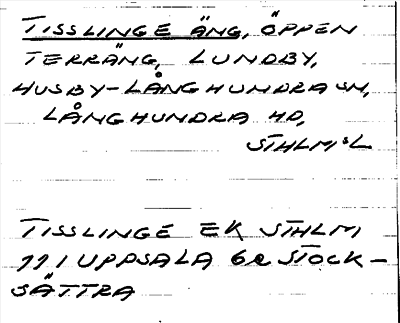 TISSLINGE ÄNG, ÖPPEN
TERRÄNG, LUNDBY,
HUSBY-LÅNGHUNDRA SN,
LÅNGHUNDRA HD,
STHLMS L
TISSLINGE EK STHLM
111 UPPSALA 6e STOCK-
SÄTTRA